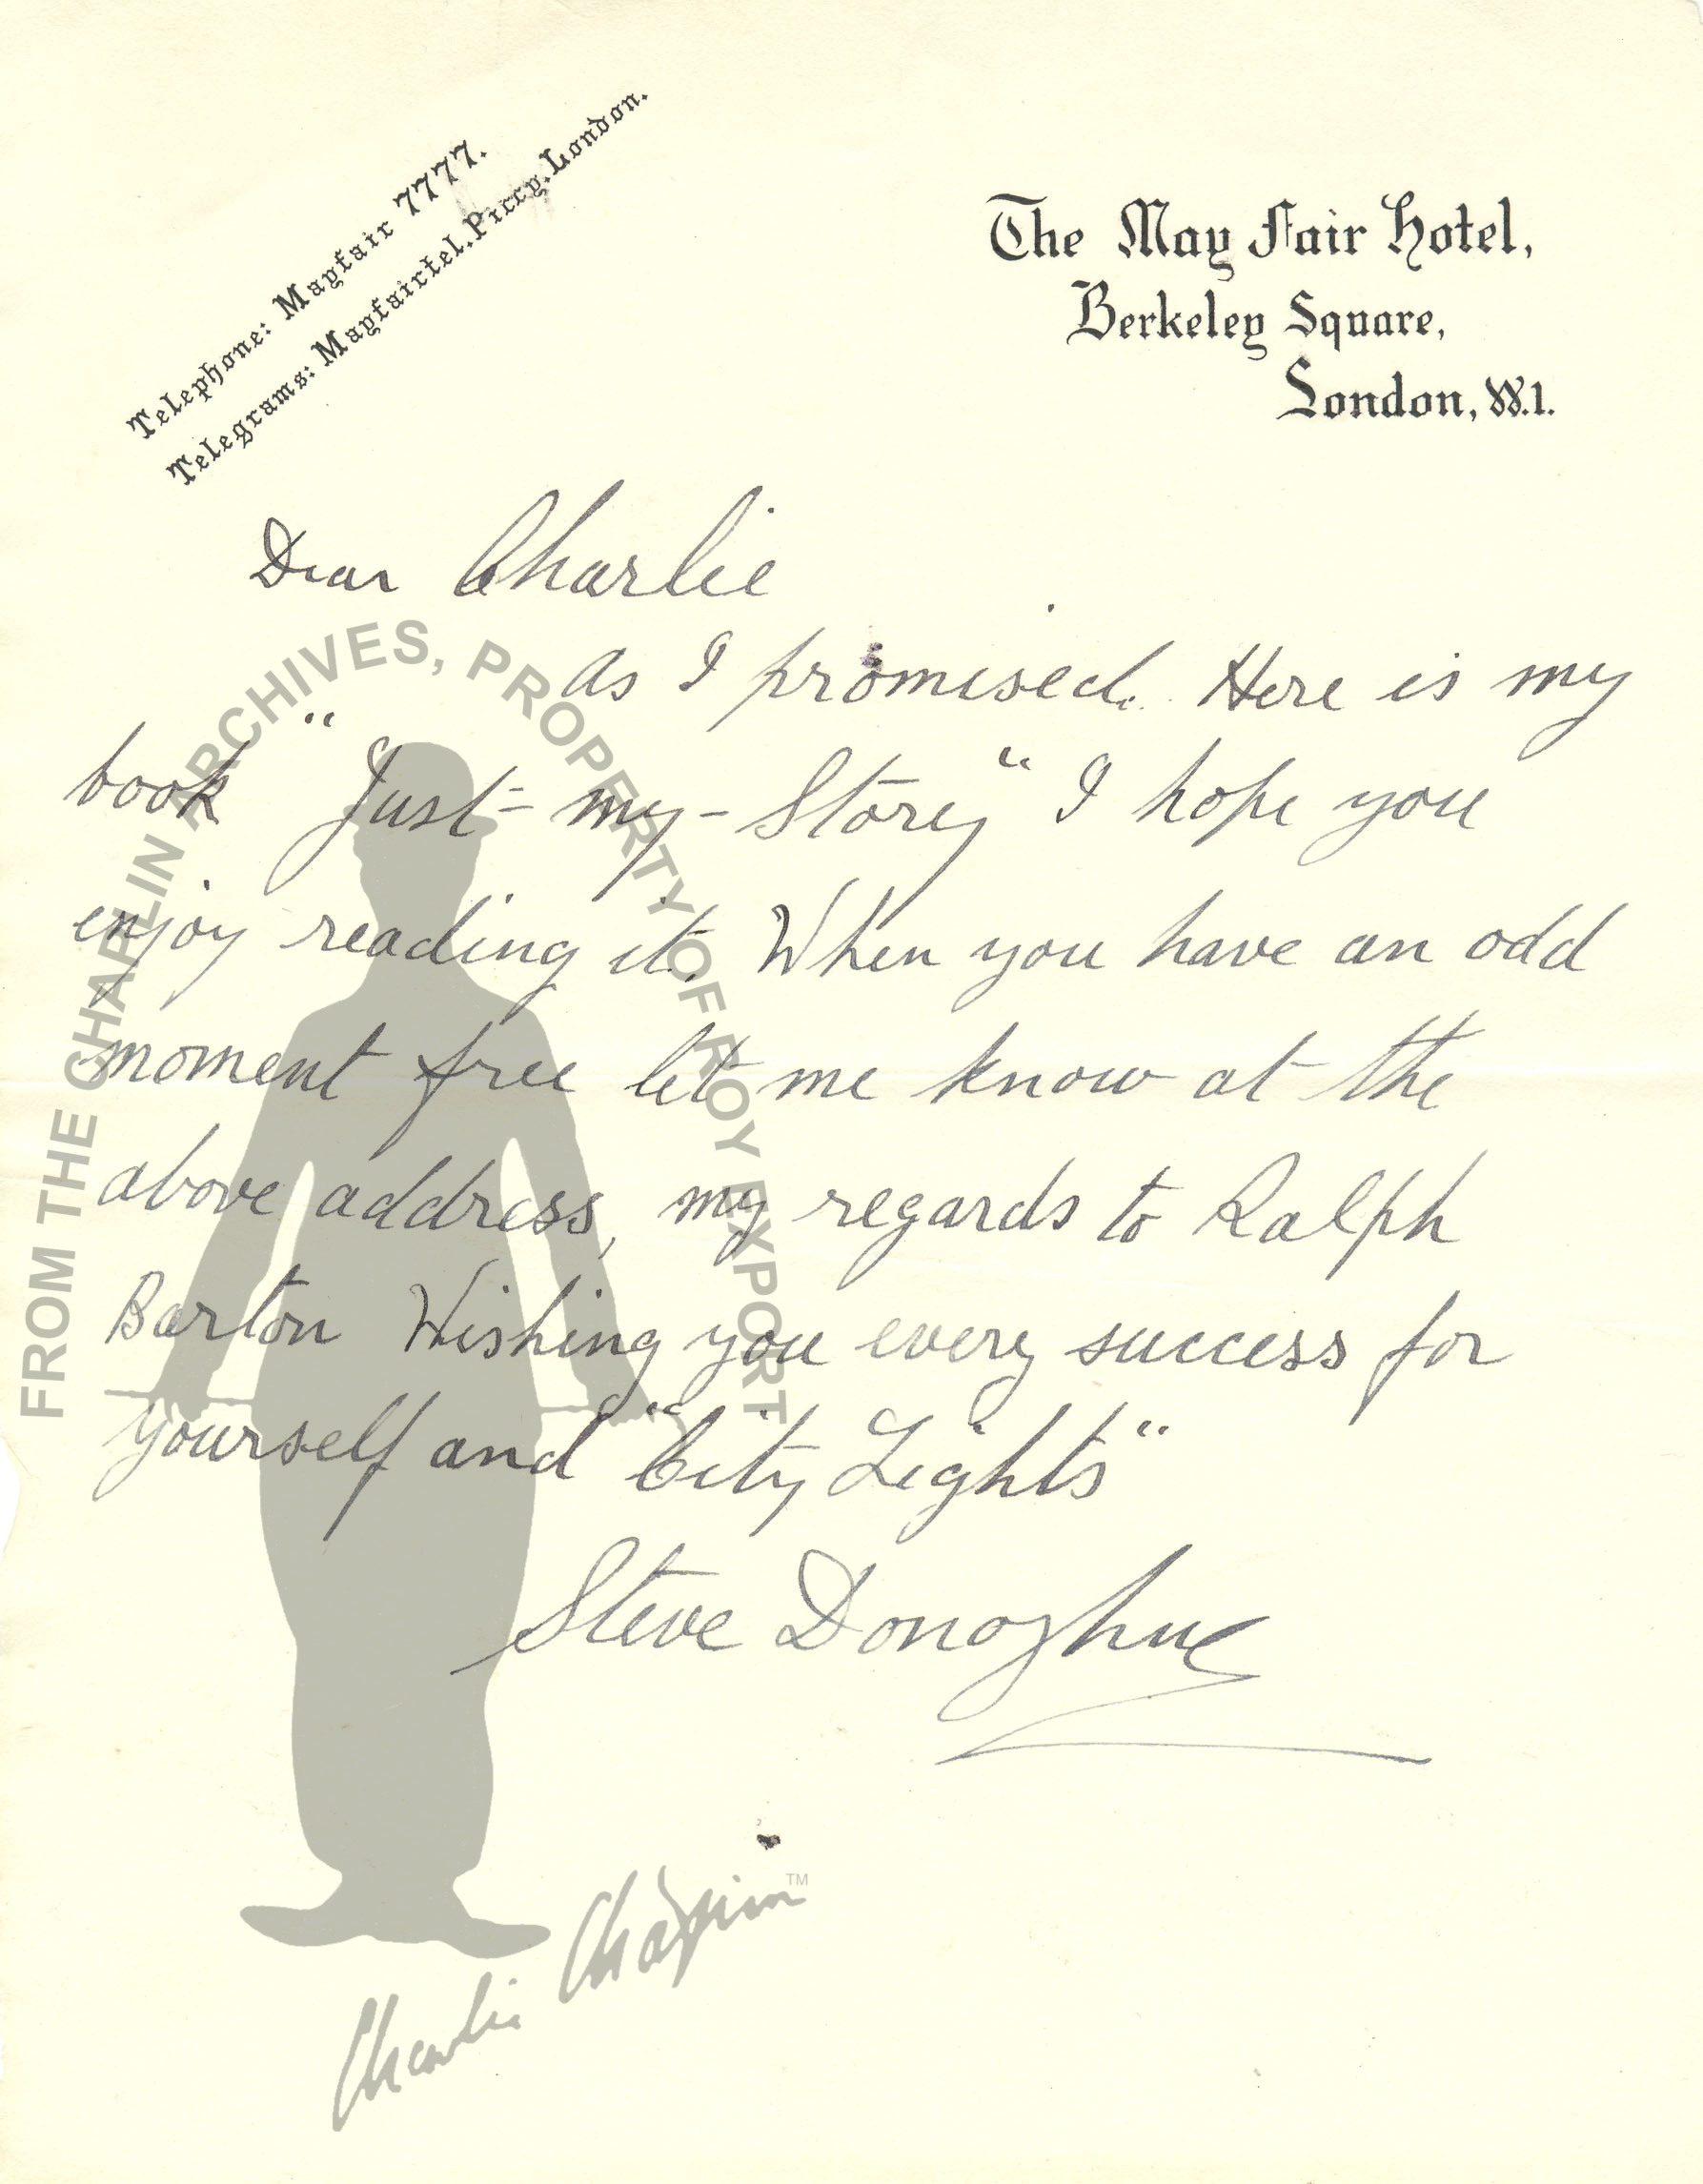 Telephone: Mayfair 7777.
Telegrams: Mayfairtel, Piccy, London.
The May Fair Hotel,
Berkeley Square,
London, W.1.
Dear Charlie
As I promised. Here is my
book "Just-my-Story" I hope you
enjoy reading it. When you have an odd
moment free let me know at the
above address, my regards to Ralph
Barton Wishing you every success for
yourself and "City Lights"
Steve Donoghue
FROM THE CHAPLIN ARCHIVES, PROPERTY OF ROY EXPORT
Charlie Chaplin TM